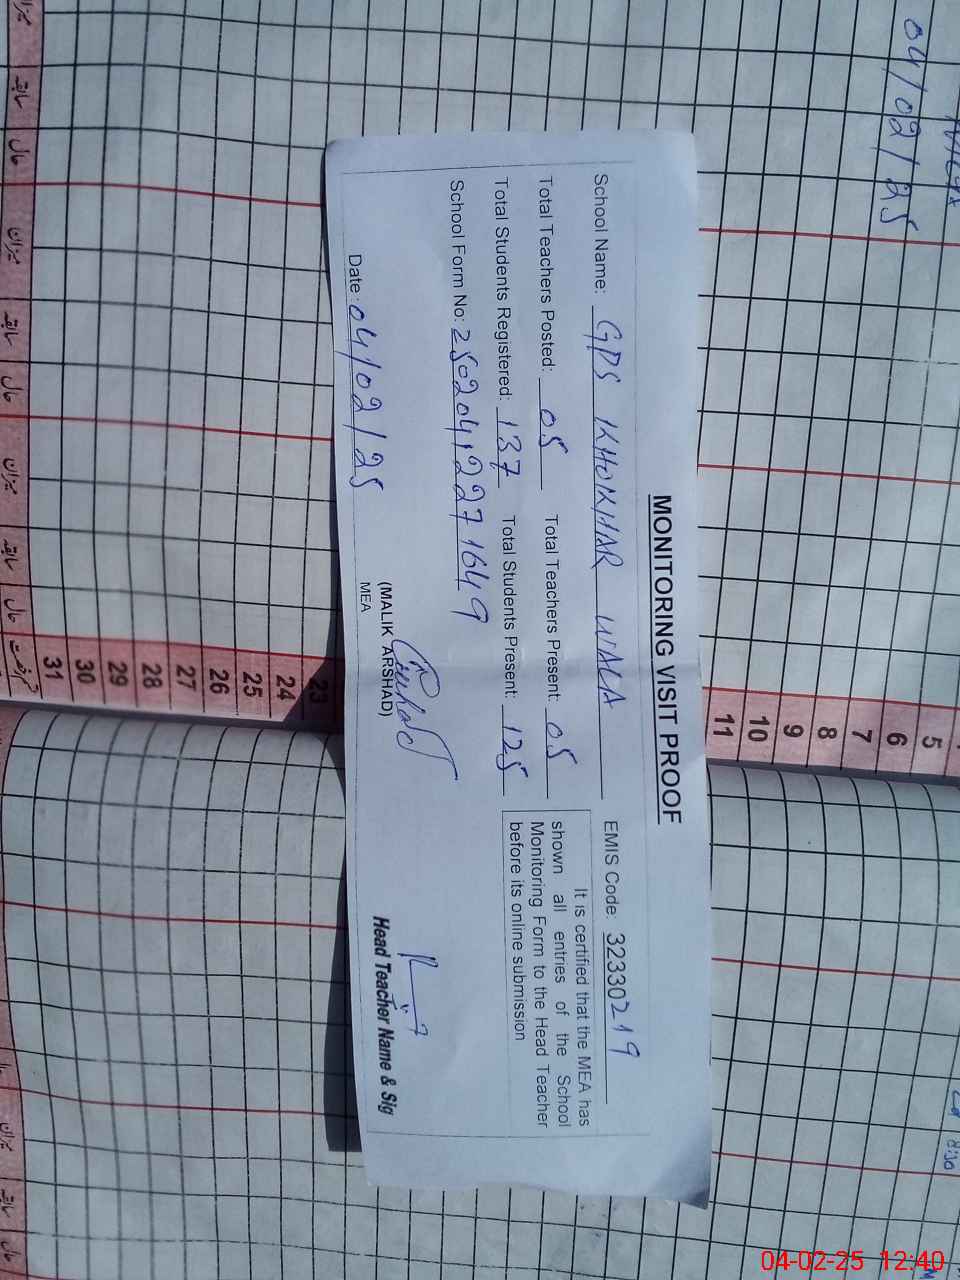 MONITORING VISIT PROOF
School Name: GPS KHOKHAR WALA EMIS Code: 32330219
Total Teachers Posted: 05 Total Teachers Present: 05
Total Students Registered: 137 Total Students Present: 125
School Form No: 25020412271649
It is certified that the MEA has
shown all entries of the School
Monitoring Form to the Head Teacher
before its online submission
Date: 04/02/25
(MALIK ARSHAD)
MEA
Head Teacher Name & Sig
04/02/25
5
6
7
8
9
10
11
23
24
25
26
27
28
29
30
31
میزان
سابقہ
حال
میزان
سابقہ
حال
میزان
سابقہ
حال
میزان
سابقہ
حال
04-02-25 12:40